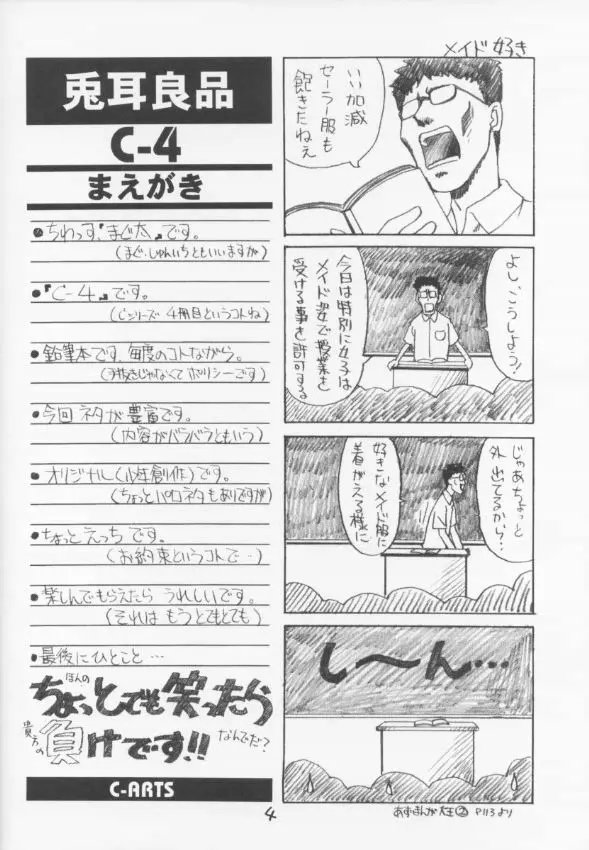 兎耳良品
C-4
まえがき
●ちわっす、『まぐ太』です。
(まぐ.じゅんいちともいいますが)
●『C-4』です。
(Cシリーズ 4冊目というコトね)
●鉛筆本です。毎度のコトながら。
(手抜きじゃなくて ポリシーです)
●今回ネタが豊富です。
(内容がバラバラともいう)
●オリジナル(少年創作)です。
(ちょっとパロネタもありですが)
●ちょっとえっちです。
(お約束というコトで…)
●楽しんでもらえたら うれしいです。
(それは もうとてもとても)
●最後にひとこと…
ほんの
ちょっとでも笑ったら
貴方の負けです!!
なんでだ?
C-ARTS
メイド好き
いい加減
セーラー服も
飽きたねえ
よし、こうしよう!
今日は特別に女子は
メイド姿で授業を
受ける事を許可する。
じゃあちょっと
外出てるから…
好きなメイド服に
着がえる様に
し〜ん…
4
あずまんが大王② P113より